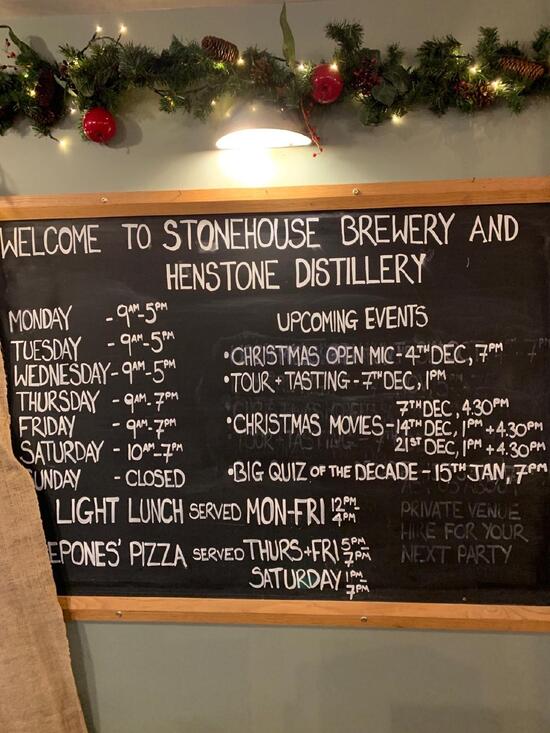 WELCOME TO STONEHOUSE BREWERY AND
HENSTONE DISTILLERY
MONDAY - 9AM-5PM
TUESDAY - 9AM-5PM
WEDNESDAY - 9AM-5PM
THURSDAY - 9AM-7PM
FRIDAY - 9AM-7PM
SATURDAY - 10AM-7PM
UNDAY - CLOSED
UPCOMING EVENTS
•CHRISTMAS OPEN MIC-4TH DEC, 7PM
•TOUR + TASTING - 7TH DEC, 1PM
7TH DEC, 4.30PM
•CHRISTMAS MOVIES-14TH DEC, 1PM +4.30PM
21ST DEC, 1PM +4.30PM
•BIG QUIZ OF THE DECADE - 15TH JAN, 7PM
LIGHT LUNCH SERVED MON-FRI 12PM-4PM
EPONES' PIZZA SERVED THURS+FRI 5PM-7PM
SATURDAY 1PM-7PM
PRIVATE VENUE
HIRE FOR YOUR
NEXT PARTY